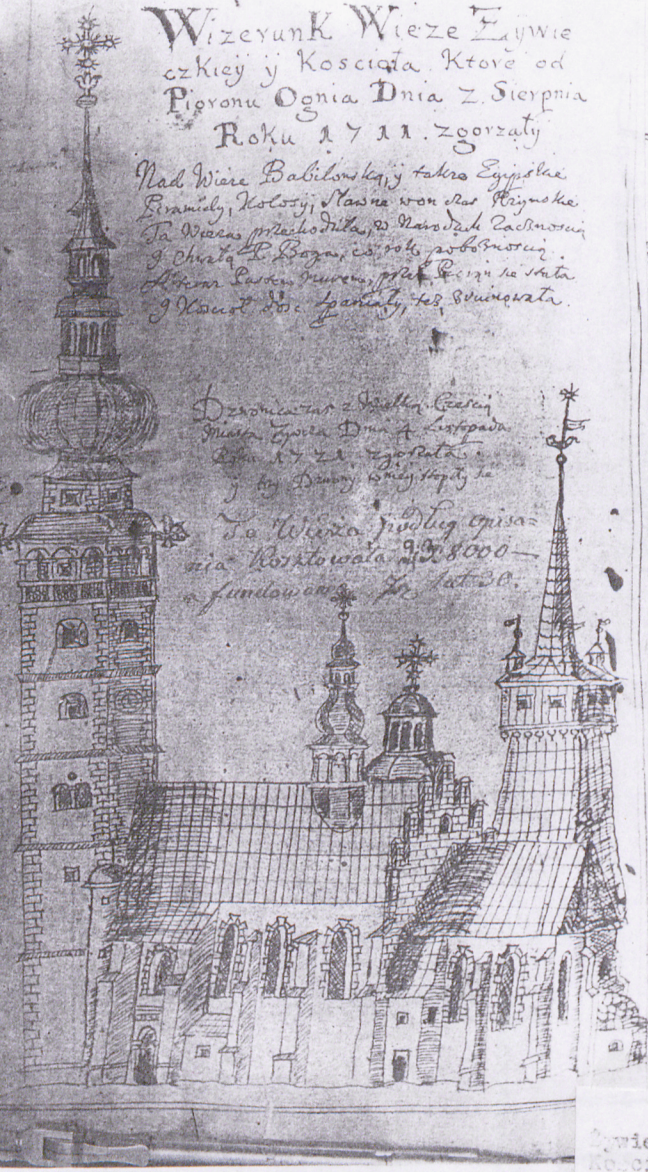 Wizerunk Wieze Zywie
czkiey y Kosciola Ktore od
Pioronu Ognia Dnia 2. Sierpnia
Roku 1711. zgorzały
Nad Wieze Babilonską, y takze Egipskie
Piramidy, Kolosy, sławne won czas Rzymskie
Ta Wieza przechodziła, w Narodach zacznoscią
y chwałą P. Boga, pobożnoscią.
się stała
y Koscioł dosc spaniały, też zruinowała.
Dzwonica zas z wielką Częscią
Miasta Zywca Dnia 4 Listopada
Roku 1721 zgorzała.
y try Dzwony w niey stopiły se
Ta Wieza podług opisa=
nia Kosztowała 8000 —
a fundowana lat 30.
Żywie